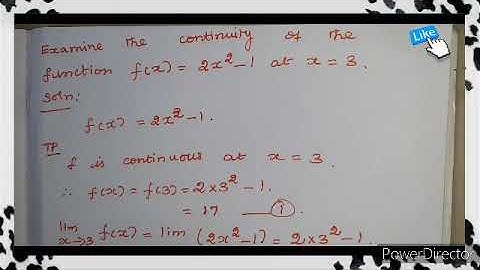 Examine the continuity of the
Like
function f(x) = 2x²-1 at x = 3.
Soln:
f(x) = 2x²-1.
TP
f is continuous at x = 3.
∴ f(x) = f(3) = 2×3²-1.
= 17 ①
lim x→3 f(x) = lim (2x²-1) = 2×3²-1.
PowerDirector